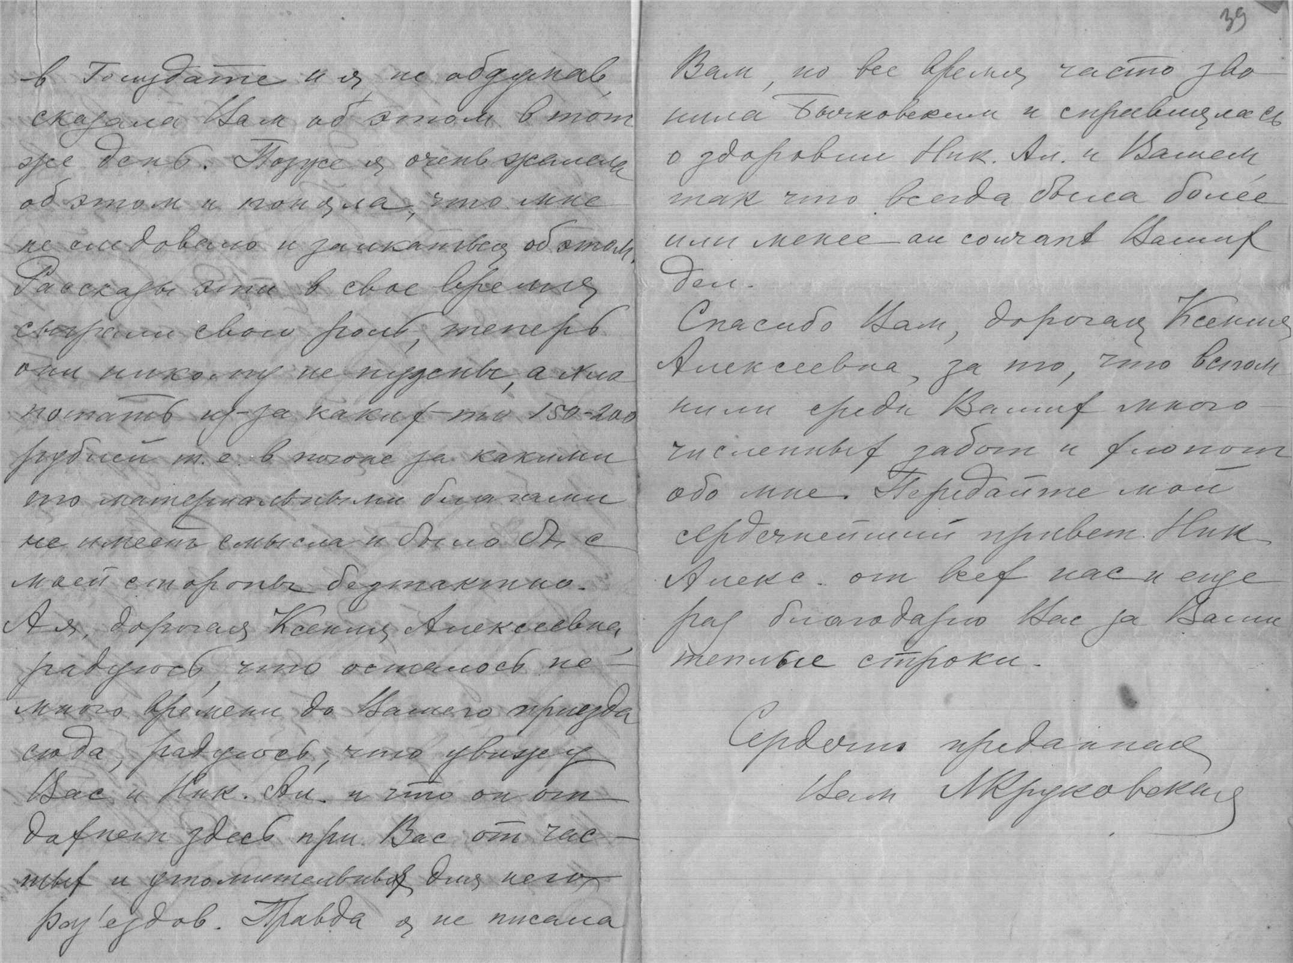 39
в Госиздате и я, не обдумав,
сказала Вам об этом в тот
же день. Позже я очень жалела
об этом и поняла, что мне
не следовало и заикаться об этом.
Рассказы эти в свое время
сыграли свою роль, теперь
они никому не нужны, а хло
потать из-за каких-то 150-200
рублей т.е. в погоне за какими
то материальными благами
не имеет смысла и было бы с
моей стороны бестактно.
А я, дорогая Ксения Алексеевна,
радуюсь, что осталось не-
много времени до Вашего приезда
сюда, радуюсь, что увижу
Вас и Ник. Ал. и что он от
дохнет здесь при Вас от час-
тых и утомительных для него
раз'ездов. Правда я не писала
Вам, но все время часто зво-
нила Бычковским и справлялась
о здоровии Ник. Ал. и Вашем
так что всегда была более
или менее au courant Ваших
дел.
Спасибо Вам, дорогая Ксения
Алексеевна, за то, что вспом
нили среди Ваших много-
численных забот и хлопот
обо мне. Передайте мой
сердечнейший привет Ник
Алекс. от всех нас и еще
раз благодарю Вас за Ваши
теплые строки.
Сердечно преданная
Вам МКруковская